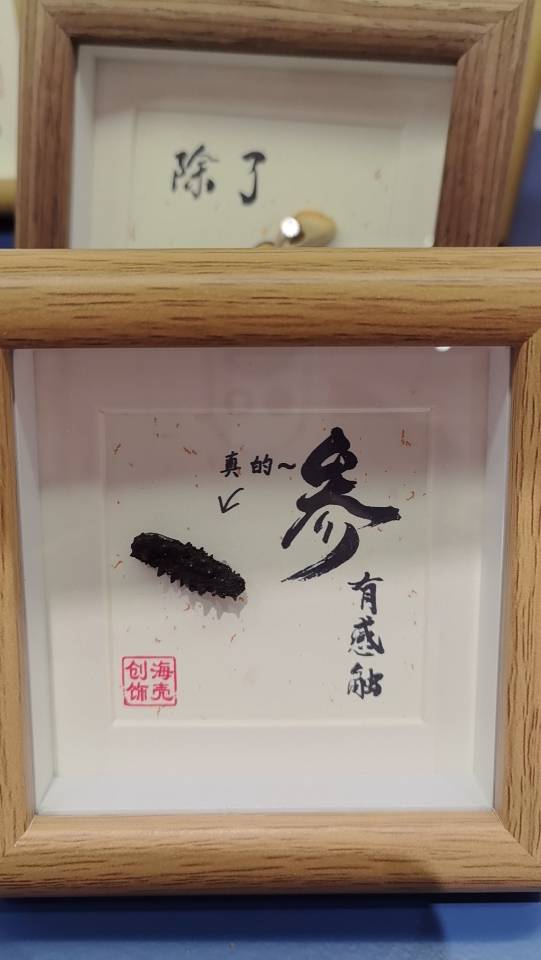 除了
真的~
参
有感触
海壳
创饰